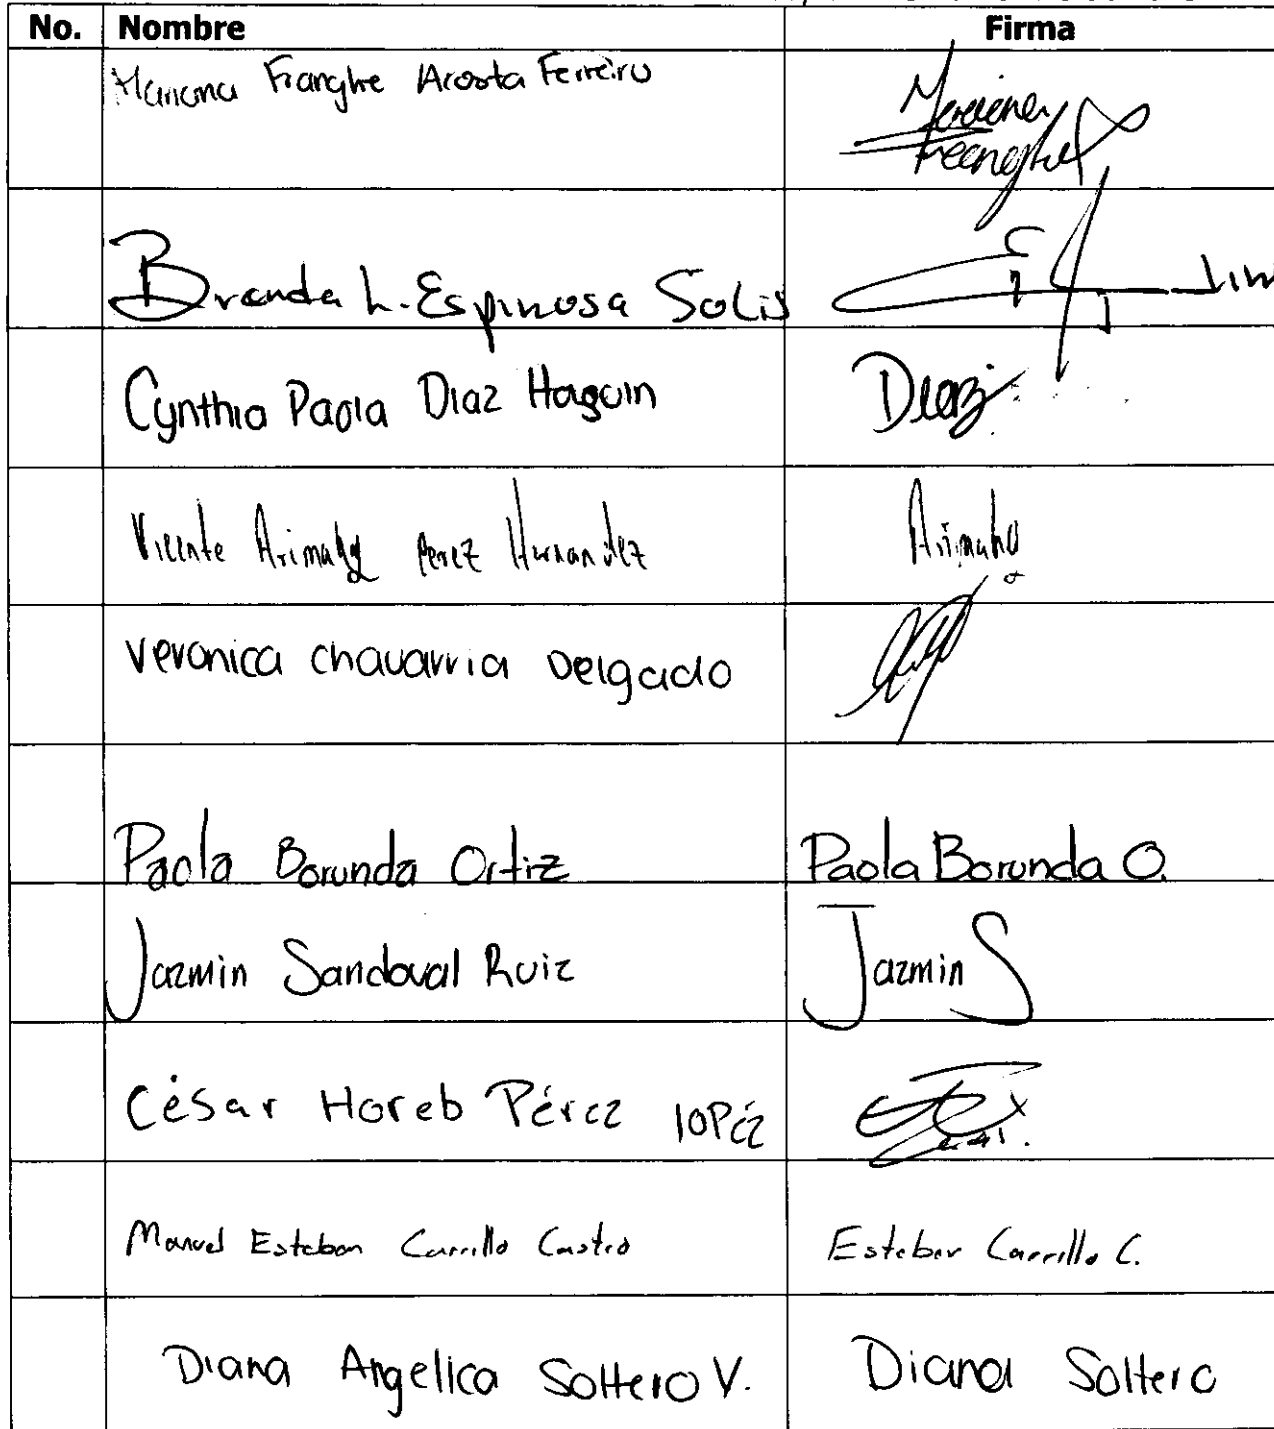 No. Nombre Firma
Mariana Franghie Acosta Ferreiro Mariana
Brenda L. Espinosa Solis
Cynthia Paola Diaz Holguin Diaz
Vicente Arimahy Perez Hernandez Arimahy
Veronica chavarria Delgado
Paola Borunda Ortiz Paola Borunda O.
Jazmin Sandoval Ruiz Jazmin S
César Horeb Pérez lopéz
Manuel Esteban Carrillo Castro Esteban Carrillo C.
Diana Angelica Soltero V. Diana Soltero